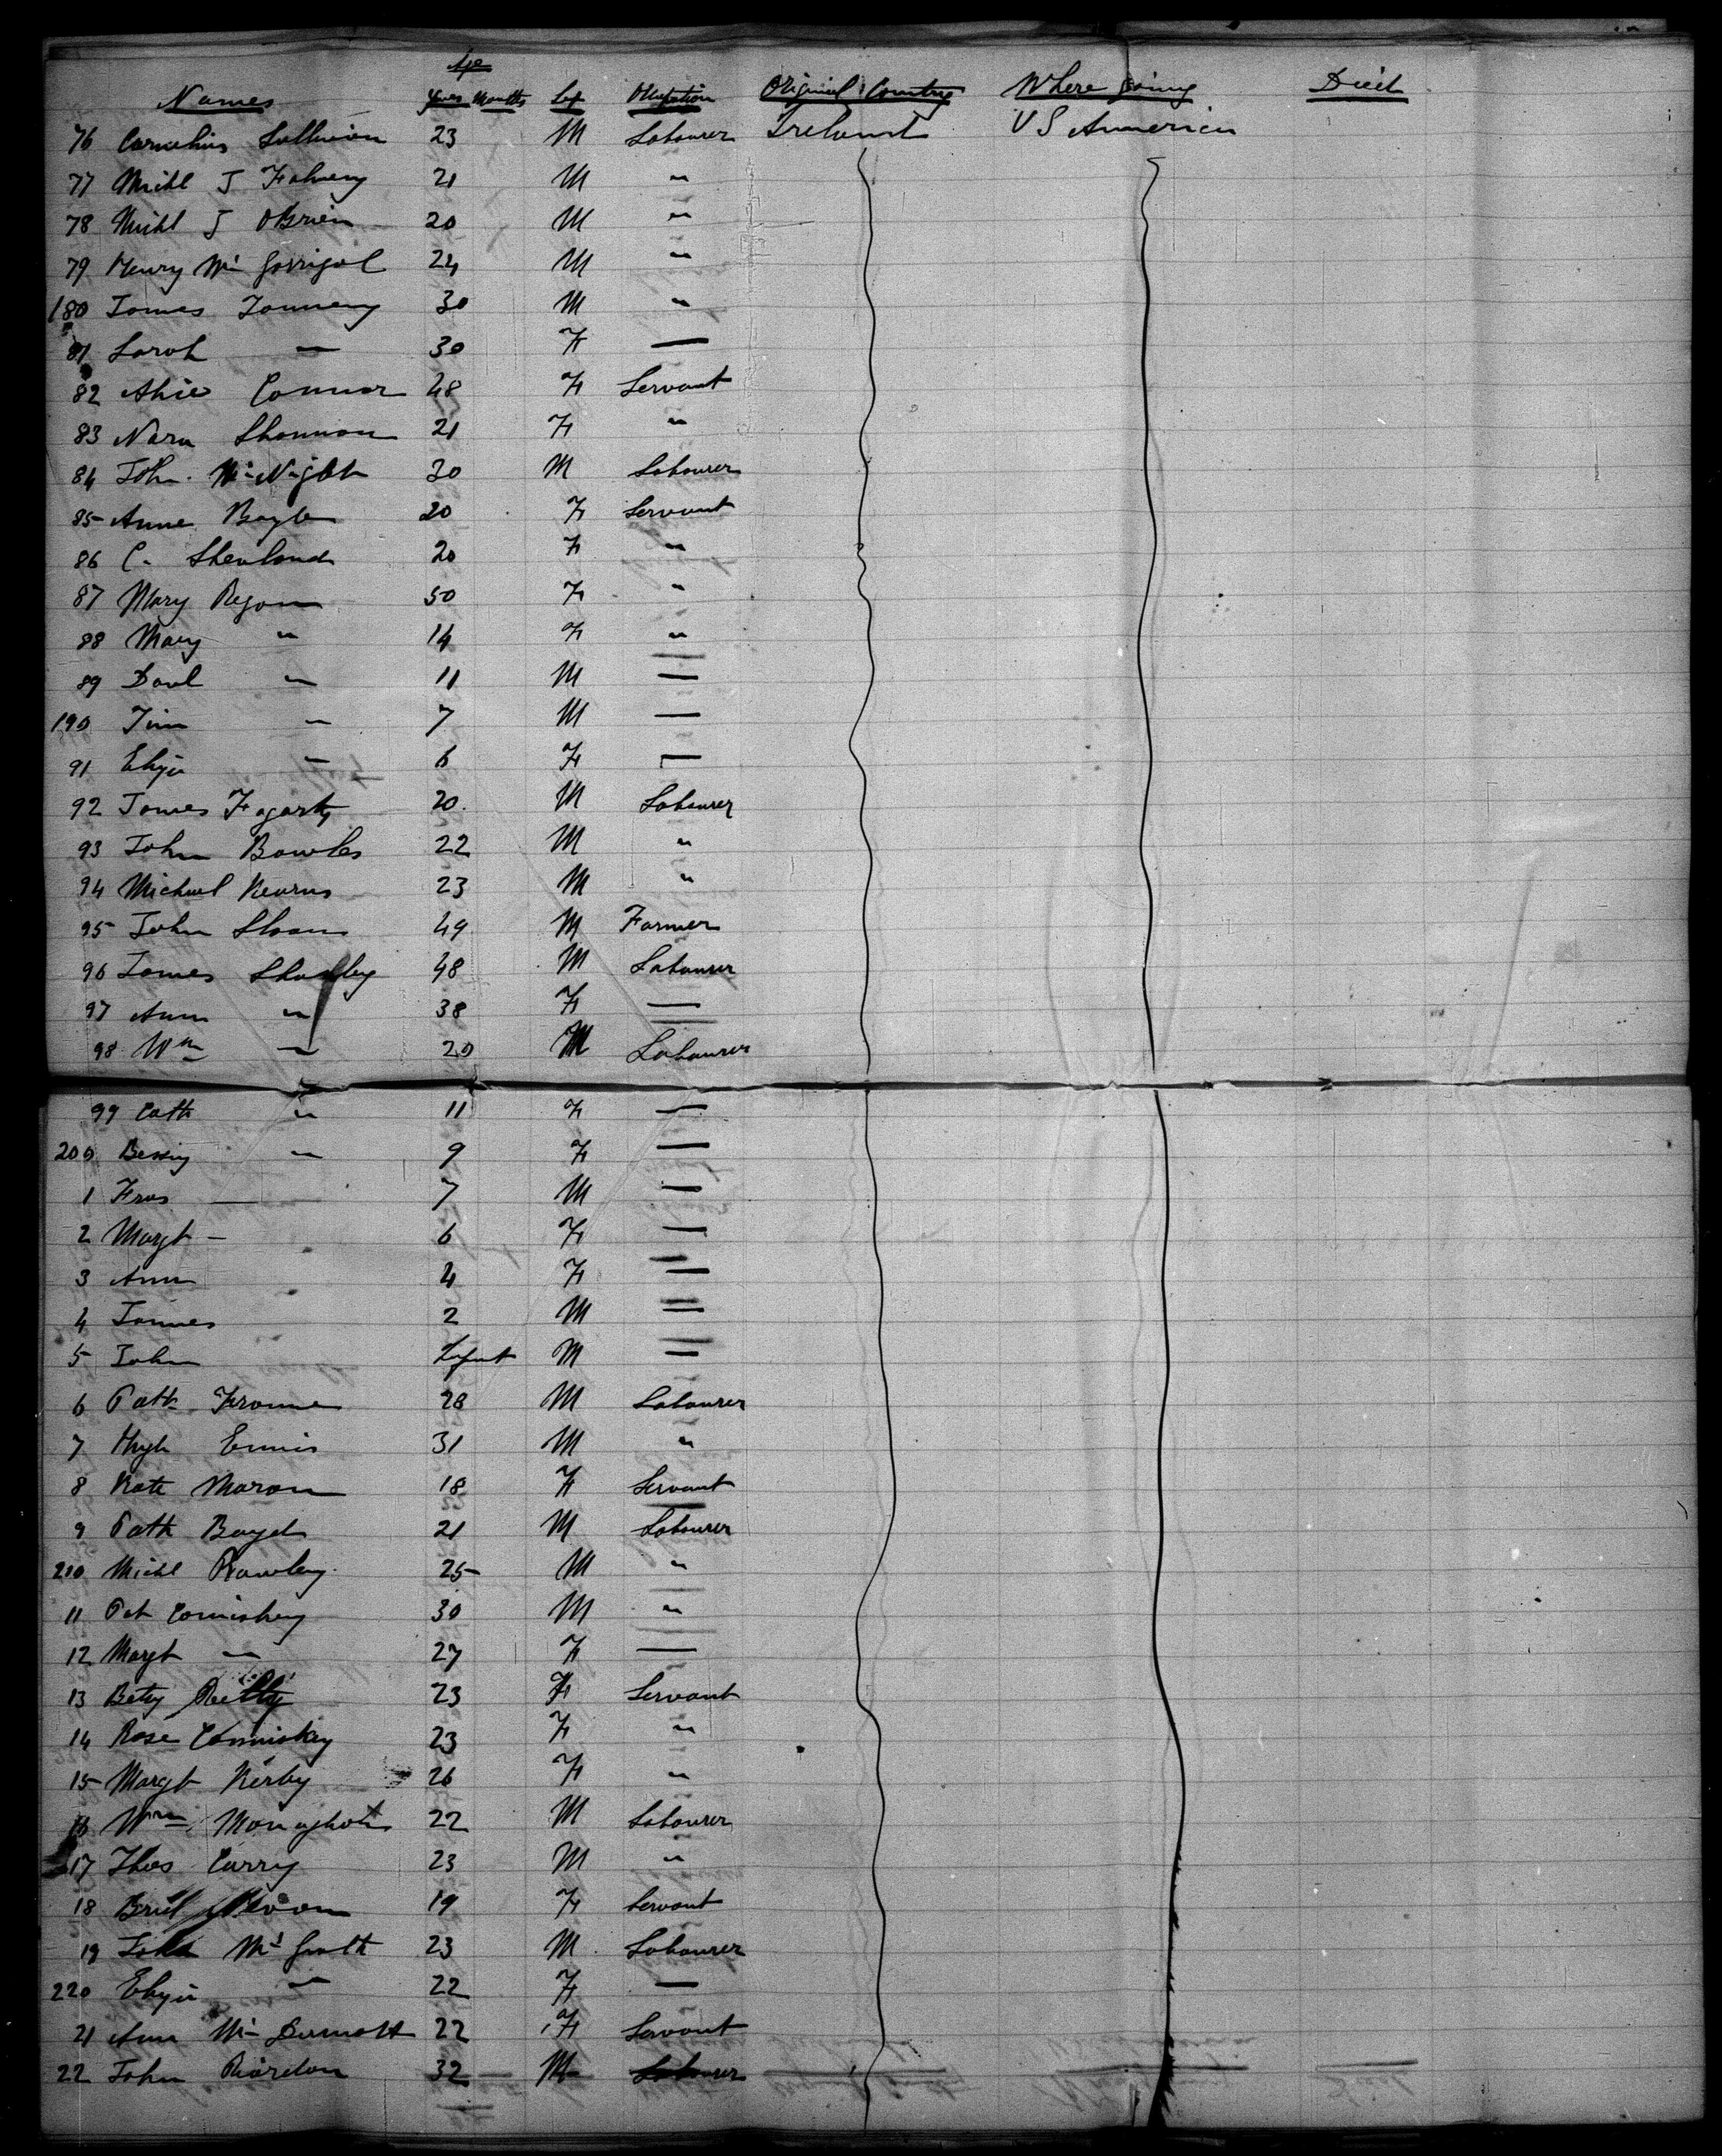 Age
Names Years Months Sex Occupation Original Country Where Going Died
76 Cornelius Sullivan 23 M Labourer Ireland U S America
77 Michl J Fahey 21 M "
78 Michl J OBrien 20 M "
79 Henry Mc Gorrigal 24 M "
180 James 30 M "
81 Sarah " 30 F —
82 Connor 48 F Servant
83 Nora Shannon 21 F "
84 John McNight 30 M Labourer
85 Anne Boyle 20 F Servant
86 C. 20 F "
87 Mary Regan 50 F "
88 Mary " 14 F "
89 Danl " 11 M —
190 Tim " 7 M —
91 Eliza " 6 F —
92 James Fogarty 20 M Labourer
93 John Bowles 22 M "
94 Michael Kearns 23 M "
95 John Sloan 49 M Farmer
96 James 48 M Labourer
97 Ann " 38 F —
98 Wm " 20 M Labourer
99 Cath " 11 F —
200 Bessy " 9 F —
1 Fras — 7 M —
2 Margt — 6 F —
3 Ann 4 F —
4 James 2 M —
5 John Infant M —
6 Patk 28 M Labourer
7 Hugh Ennis 31 M "
8 Kate Moran 18 F Servant
9 Patk Boyd 21 M Labourer
210 Michl Rowley 25 M "
11 Pat Comiskey 30 M "
12 Margt " 27 F —
13 Betsy Reilly 23 F Servant
14 Rose Comiskey 23 F "
15 Margt Kerby 26 F "
16 Wm Monaghan 22 M Labourer
17 Thos Curry 23 M "
18 19 F Servant
19 John Mc Grath 23 M Labourer
220 Eliza " 22 F —
21 Ann Mc Dermott 22 F Servant
22 John Riordon 32 M Labourer